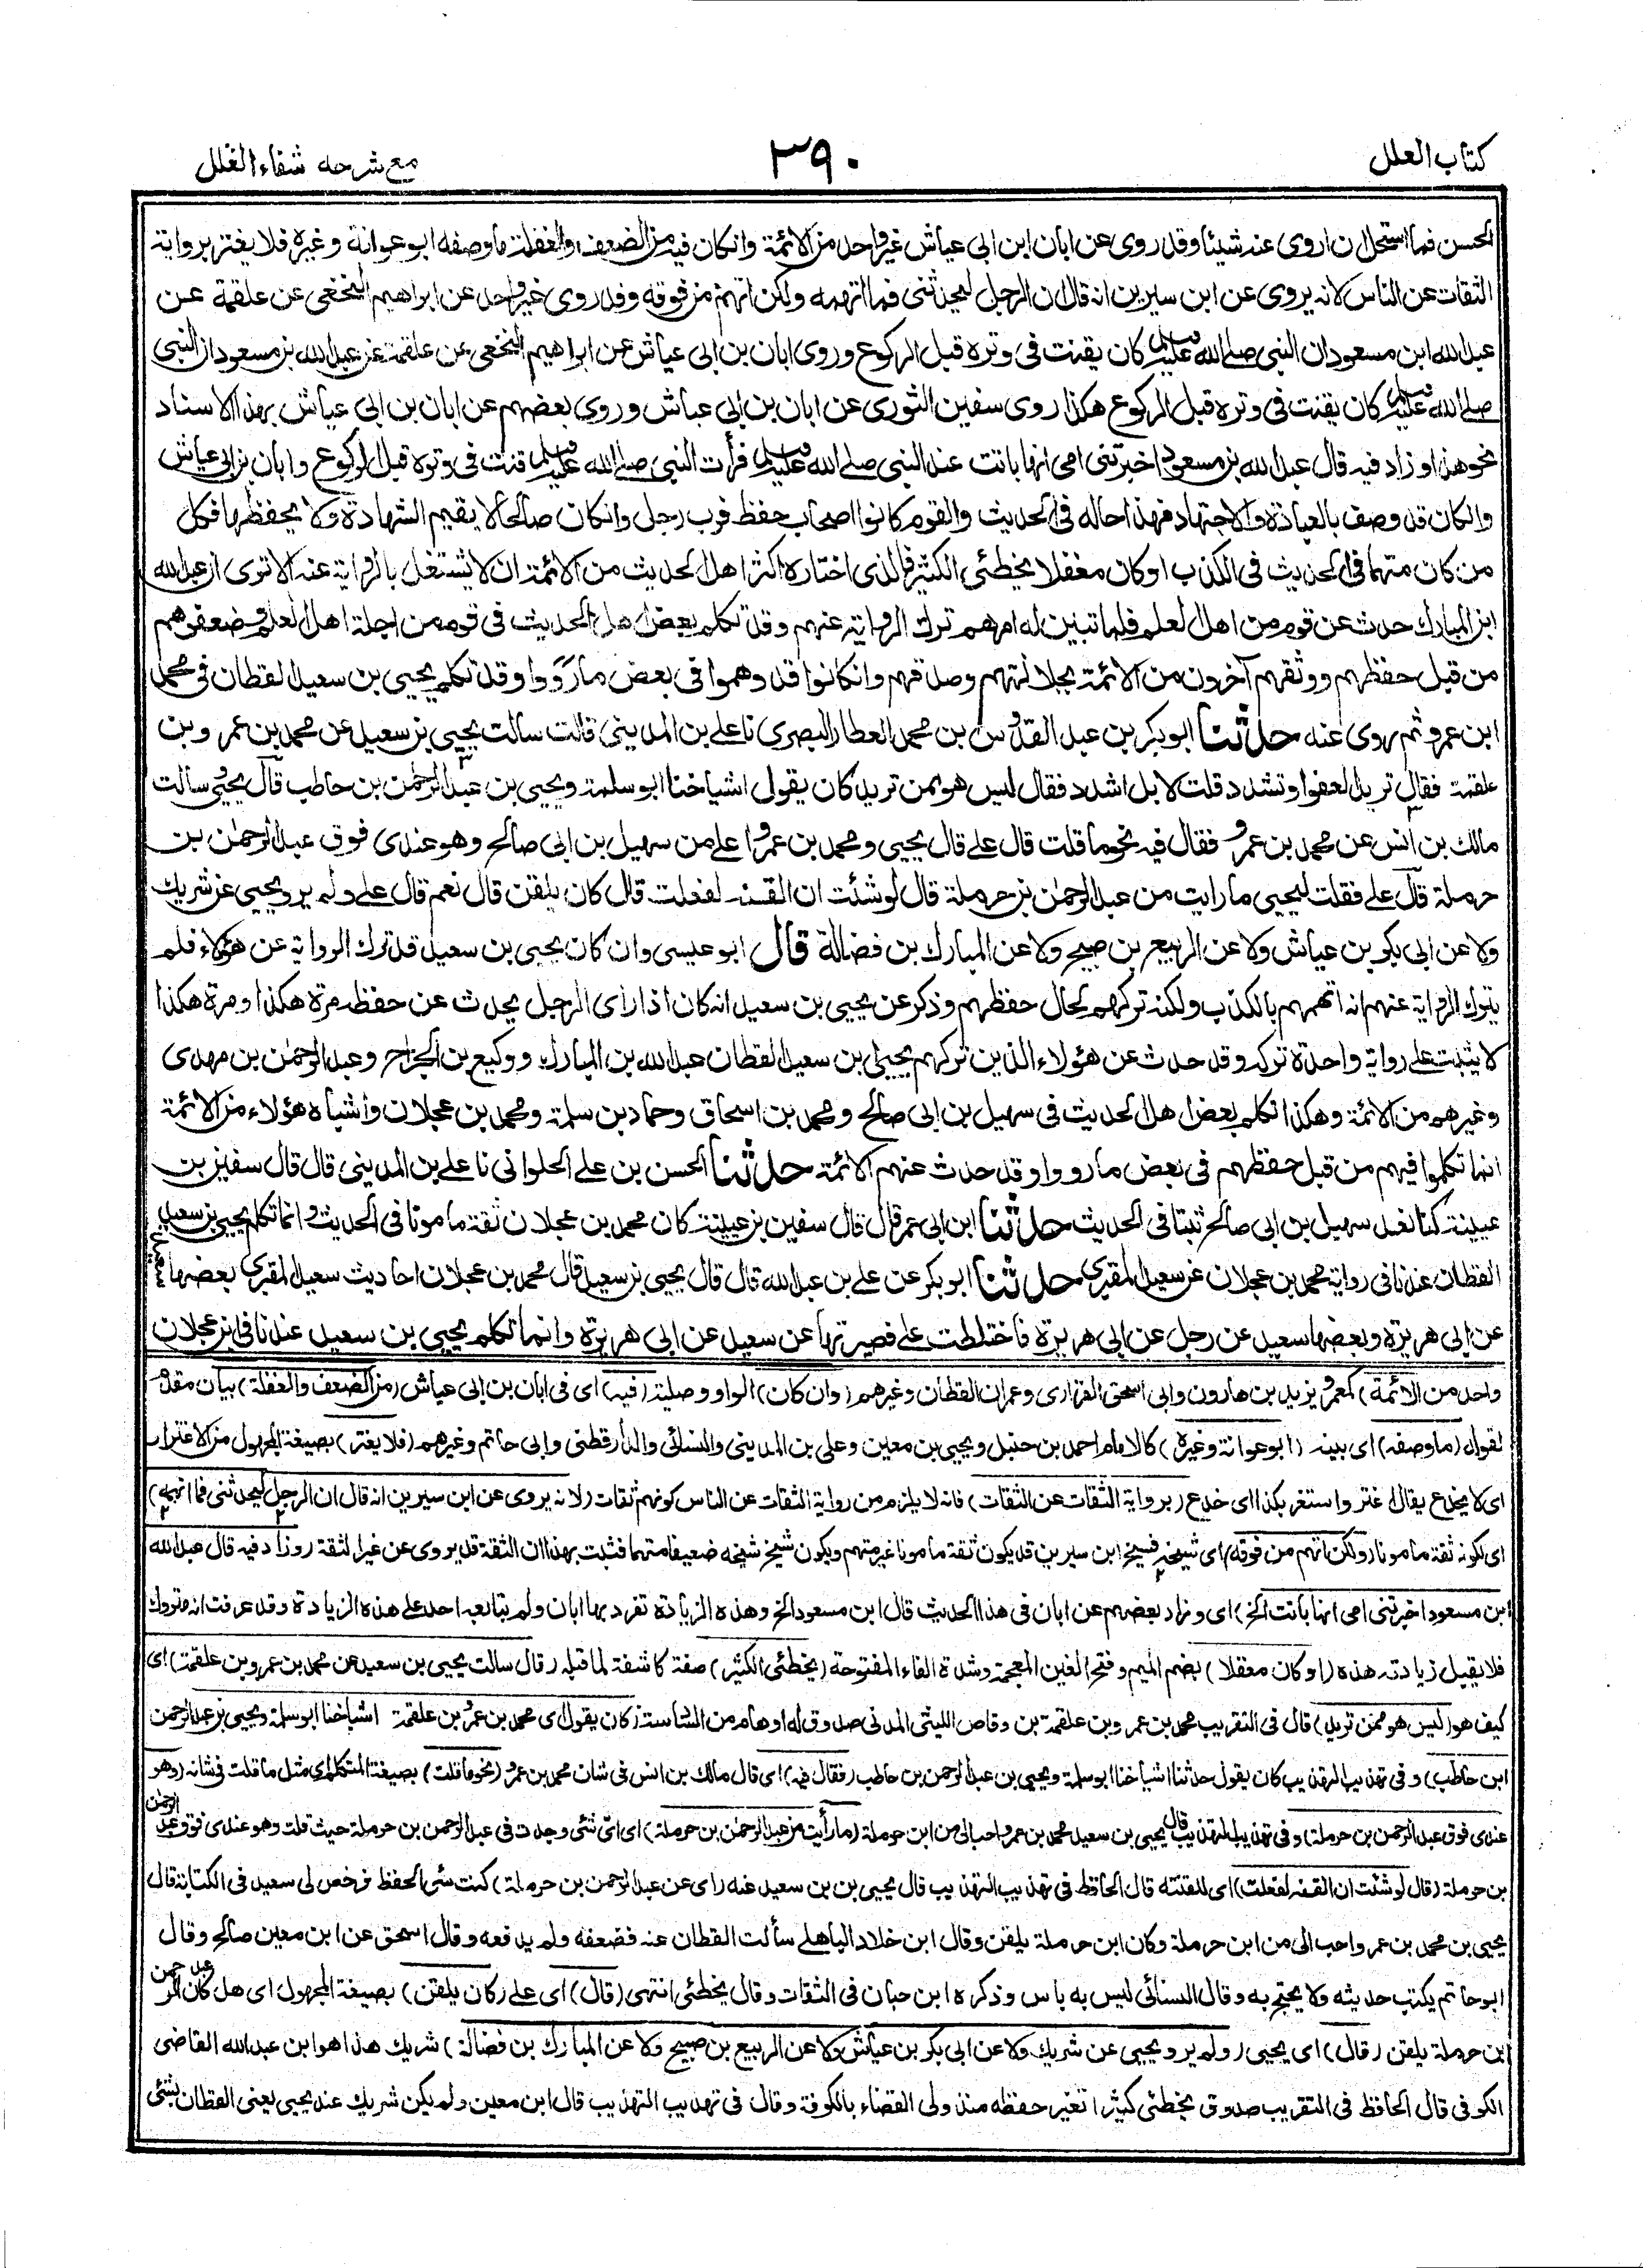 كتاب العلل
٣٩٠
مع شرحه شفاء الغلل
الحسن فما استحل ان اروى عنه شيئا وقد روى عن ابان ابن ابى عياش غير واحد من الائمة وانكان فيه من الضعف والغفلة ما وصفه ابو عوانة وغيره فلا يغتر برواية
الثقات عن الناس لانه يروى عن ابن سيرين انه قال ان الرجل ليحدثنى فما اتهمه ولكن اتهم من فوقه وقد روى غير واحد عن ابراهيم النخعى عن علقمة عن
عبد الله ابن مسعود ان النبى صلى الله عليه وسلم كان يقنت فى وتره قبل الركوع وروى ابان بن ابى عياش عن ابراهيم النخعى عن علقمة عن عبد الله بن مسعود ان النبى
صلى الله عليه وسلم كان يقنت فى وتره قبل الركوع هكذا روى سفين الثورى عن ابان بن ابى عياش وروى بعضهم عن ابان بن ابى عياش بهذا الاسناد
نحو هذا وزاد فيه قال عبد الله بن مسعود اخبرتنى امى انها باتت عند النبى صلى الله عليه وسلم فرأت النبى صلى الله عليه وسلم قنت فى وتره قبل الركوع وابان بن ابى عياش
وانكان قد وصف بالعبادة والاجتهاد فهذا حاله فى الحديث والقوم كانوا اصحاب حفظ فرب رجل وانكان صالحا لا يقيم الشهادة ولا يحفظها فكل
من كان متهما فى الحديث فى الكذب او كان مغفلا يخطئ الكثير فالذى اختاره اكثر اهل الحديث من الائمة ان لا يشتغل بالرواية عنه الا ترى ان عبد الله
ابن المبارك حدث عن قوم من اهل العلم فلما تبين له امرهم ترك الرواية عنهم وقد تكلم بعض اهل الحديث فى قوم من اجلة اهل العلم وضعفوهم
من قبل حفظهم ووثقهم آخرون من الائمة بجلالتهم وصدقهم وانكانوا قد وهموا فى بعض ما رووا وقد تكلم يحيى بن سعيد القطان فى محمد
ابن عمرو ثم روى عنه حدثنا ابو بكر بن عبد القدوس بن محمد العطار البصرى نا على بن المدينى قالت سألت يحيى بن سعيد عن محمد بن عمرو بن
علقمة فقال تريد العفو او تشدد قلت لا بل اشدد فقال ليس هو ممن تريد كان يقول اشياخنا ابو سلمة ويحيى بن عبد الرحمن بن حاطب قال يحيى وسألت
مالك بن انس عن محمد بن عمرو فقال فيه نحو ما قلت قال على قال يحيى ومحمد بن عمرو اعلى من سهيل بن ابى صالح وهو عندى فوق عبد الرحمن بن
حرملة قال على فقلت ليحيى ما رايت من عبد الرحمن بن حرملة قال لو شئت ان القنه لفعلت قال كان يلقن قال نعم قال على ولم يرو يحيى عن شريك
ولا عن ابى بكر بن عياش ولا عن الربيع بن صبيح ولا عن المبارك بن فضالة قال ابو عيسى وان كان يحيى بن سعيد قد ترك الرواية عن هؤلاء فلم
يترك الرواية عنهم انه اتهمهم بالكذب ولكنه تركهم لحال حفظهم وذكر عن يحيى بن سعيد انه كان اذا راى الرجل يحدث عن حفظه مرة هكذا ومرة هكذا
لا يثبت على رواية واحدة تركه وقد حدث عن هؤلاء الذين تركهم يحيى بن سعيد القطان عبد الله بن المبارك ووكيع بن الجراح وعبد الرحمن بن مهدى
وغيرهم من الائمة وهكذا تكلم بعض اهل الحديث فى سهيل بن ابى صالح ومحمد بن اسحاق وحماد بن سلمة ومحمد بن عجلان واشباه هؤلاء من الائمة
انما تكلموا فيهم من قبل حفظهم فى بعض ما رووا وقد حدث عنهم الائمة حدثنا الحسن بن على الحلوانى نا على بن المدينى قال قال سفين بن
عيينة كنا نعد سهيل بن ابى صالح ثبتا فى الحديث حدثنا ابن ابى عمر قال قال سفين بن عيينة كان محمد بن عجلان ثقة مامونا فى الحديث وانما تكلم يحيى بن سعيد
القطان عندنا فى رواية محمد بن عجلان عن سعيد المقبرى حدثنا ابو بكر عن على بن عبد الله قال قال يحيى بن سعيد قال محمد بن عجلان احاديث سعيد المقبرى بعضها سعيد
عن ابى هريرة وبعضها سعيد عن رجل عن ابى هريرة فاختلطت على فصيرتها عن سعيد عن ابى هريرة وانما تكلم يحيى بن سعيد عندنا فى ابن عجلان
واحد من الائمة) كمعمر ويزيد بن هارون وابى اسحق الفزارى وعمران القطان وغيرهم (وان كان) الواو وصلية (فيه) اى فى ابان بن ابى عياش (من الضعف والغفلة) بيان مقدم
لقوله (ما وصفه) اى بينه (ابو عوانة وغيره) كالامام احمد بن حنبل ويحيى بن معين وعلى بن المدينى والنسائى والدارقطنى وابى حاتم وغيرهم (فلا يغتر) بصيغة المجهول من الاغترار
اى لا يخدع يقال اغتر واستغر بكذا اى خدع (برواية الثقات عن الثقات) فانه لا يلزم من رواية الثقات عن الناس كونهم ثقات (لانه يروى عن ابن سيرين انه قال ان الرجل ليحدثنى فما اتهمه)
اى لكونه ثقة مامونا (ولكن اتهم من فوقه) اى شيخه فشيخ ابن سيرين قد يكون ثقة مامونا غير متهم ويكون شيخ شيخه ضعيفا متهما فثبت بهذا ان الثقة قد يروى عن غير الثقة (وزاد فيه قال عبد الله
ابن مسعود اخبرتنى امى انها باتت الخ) اى وزاد بعضهم عن ابان فى هذا الحديث قال ابن مسعود الخ وهذه الزيادة تفرد بها ابان ولم يتابعه احد على هذه الزيادة وقد عرفت انه متروك
فلا يقبل زيادته هذه (او كان مغفلا) بضم الميم وفتح الغين المعجمة وشدة الفاء المفتوحة (يخطئ الكثير) صفة كاشفة لما قبله (قال سالت يحيى بن سعيد عن محمد بن عمرو بن علقمة) اى
كيف هو (ليس هو ممن تريد) قال فى التقريب محمد بن عمرو بن علقمة بن وقاص الليثى المدنى صدوق له اوهام من السادسة (كان يقول) اى محمد بن عمرو بن علقمة اشياخنا ابو سلمة ويحيى بن عبد الرحمن
ابن حاطب) وفى تهذيب التهذيب كان يقول حدثنا اشياخنا ابو سلمة ويحيى بن عبد الرحمن بن حاطب (فقال فيه) اى قال مالك بن انس فى شان محمد بن عمرو (نحو ما قلت) بصيغة المتكلم اى مثل ما قلت فى شانه (وهو
عندى فوق عبد الرحمن بن حرملة) وفى تهذيب التهذيب قال يحيى بن سعيد محمد بن عمرو احب الى من ابن حرملة (ما رأيت من عبد الرحمن بن حرملة) اى اى شئ وجدت فى عبد الرحمن بن حرملة حيث قلت وهو عندى فوق عبد الرحمن
بن حرملة (قال لو شئت ان القنه لفعلت) اى للقنته قال الحافظ فى تهذيب التهذيب قال يحيى بن بن سعيد عنه (اى عن عبد الرحمن بن حرملة) كنت سئ الحفظ فرخص لى سعيد فى الكتابة قال
يحيى بن محمد بن عمر واحب الى من ابن حرملة وكان ابن حرملة يلقن وقال ابن خلاد الباهلى سألت القطان عنه فضعفه ولم يدفعه وقال اسحق عن ابن معين صالح وقال
ابو حاتم يكتب حديثه ولا يحتج به وقال النسائى ليس به باس وذكره ابن حبان فى الثقات وقال يخطئ انتهى (قال) اى على (كان يلقن) بصيغة المجهول اى هل كان عبد الرحمن
ابن حرملة يلقن (قال) اى يحيى (ولم يرو يحيى عن شريك ولا عن ابى بكر بن عياش ولا عن الربيع بن صبيح ولا عن المبارك بن فضالة) شريك هذا هو ابن عبد الله القاضى
الكوفى قال الحافظ فى التقريب صدوق يخطئ كثيرا تغير حفظه منذ ولى القضاء بالكوفة وقال فى تهذيب التهذيب قال ابن معين ولم يكن شريك عند يحيى يعنى القطان بشئ